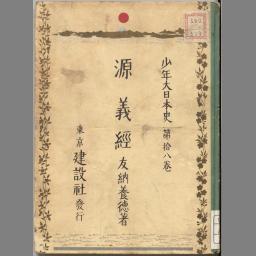 少年大日本史 第拾八卷
源義經 友納養徳著
東京 建設社 發行